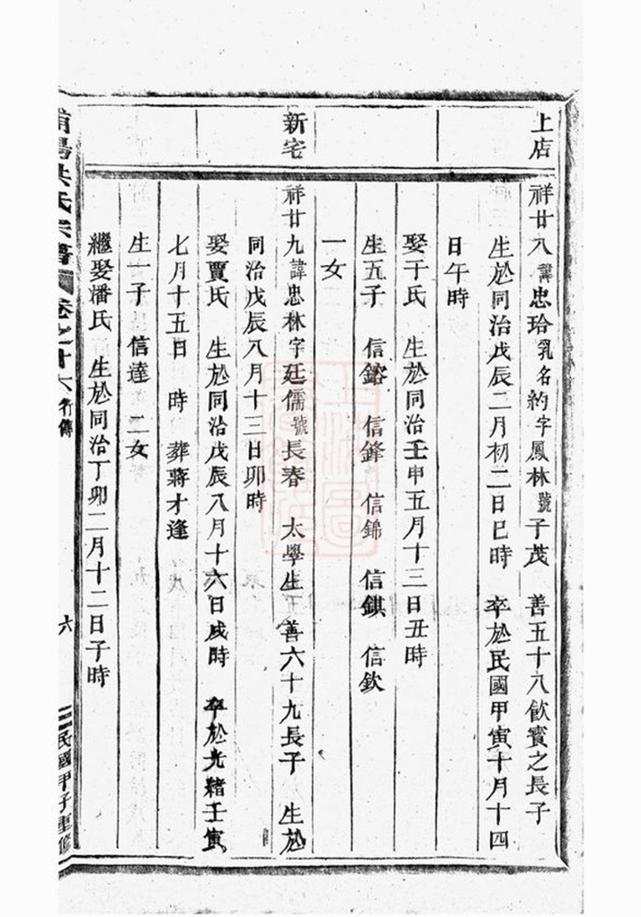 上店
祥廿八諱忠珨乳名約字鳳林號子茂　善五十八飲賓之長子
生於同治戊辰二月初二日巳時　卒於民國甲寅十月十四
日午時
娶于氏　生於同治壬申五月十三日丑時
生五子　信鎔　信鋒　信錦　信錤　信欽
一女
新宅
祥廿九諱忠林字廷儒號長春　太學生　善六十九長子　生於
同治戊辰八月十三日卯時
娶賈氏　生於同治戊辰八月十六日戌時　卒於光緒壬寅
七月十五日　時　葬蔣才逢
生一子　信達　二女
繼娶潘氏　生於同治丁卯二月十二日子時
浦陽洪氏宗譜　卷之十六　行傳　六　民國甲子重修